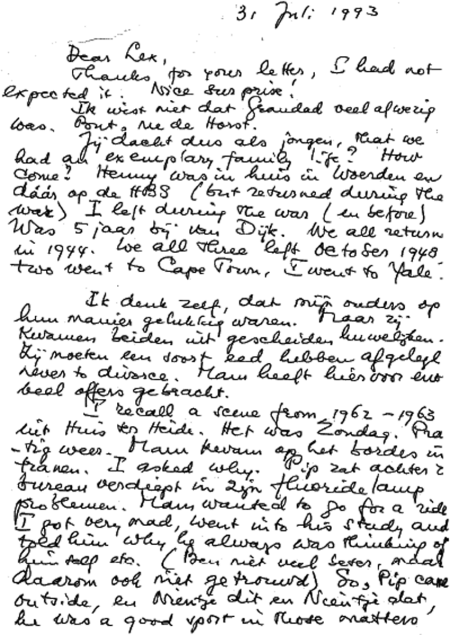 31 Juli 1993
Dear Lex,
Thanks for your letter, I had not
expected it. Nice surprise!
Ik wist niet dat Grandad veel afwezig
was. Pont, rue de Horst.
Jij dacht dus als jongen, that we
had an exemplary family life? How
come? Henny was in huis in Woerden en
dáár op de HBS (but returned during the
war) I left during the was (en before)
Was 5 jaar bij van Dijk. We all return
in 1944. We all three left October 1948
two went to Cape Town, I went to Yale.
Ik denk zelf, dat mijn ouders op
hun manier gelukkig waren. Maar zij
kwamen beiden uit gescheiden huwelijken.
Zij moeten een soort eed hebben afgelegd
never to divorce. Mam heeft hiervoor
veel offers gebracht.
I recall a scene from 1962-1963
uit Huis ter Heide. Het was Zondag. Pra
-tig weer. Mam kwam op het bordes in
tranen. I asked why. Pip zat achter z
bureau verdiept in zijn fluoride/amp
problemen. Mam wanted to go for a ride
I got very mad, went into his study and
told him why he always was thinking of
himself etc. (Ben niet veel beter, maar
daarom ook niet getrouwd) So, Pip came
outside, en Nientje dit en Nientje dat,
he was a good sport in those matters